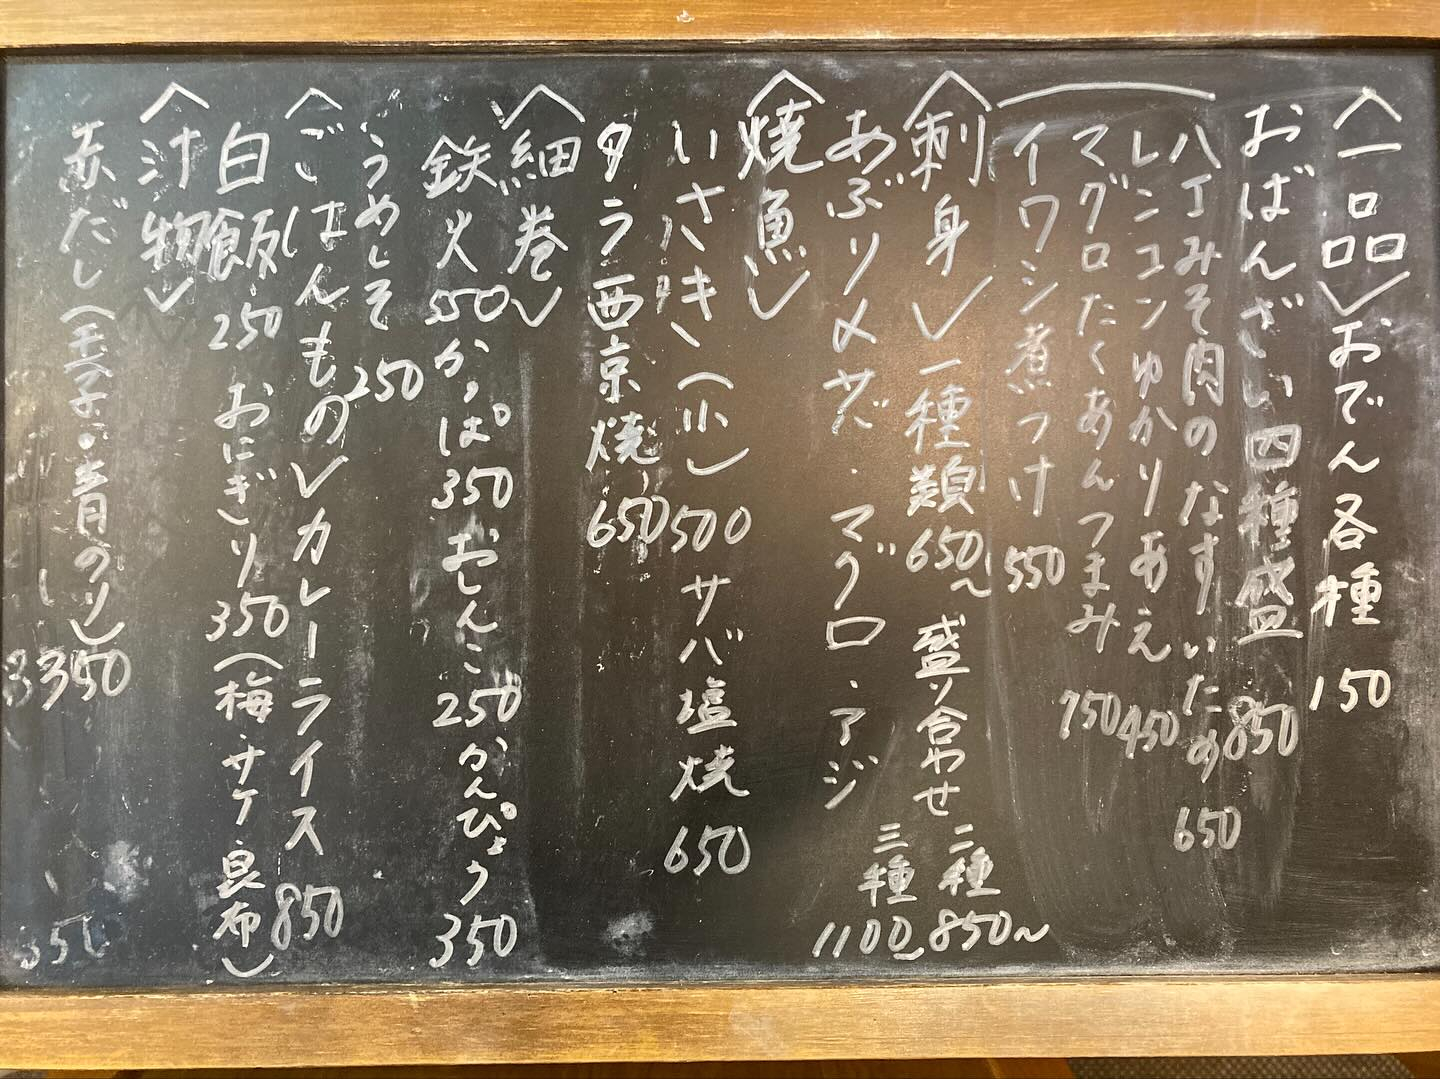 〈一品〉おでん各種 150
おばんざい四種盛 850
八丁みそ肉のなすいため 650
レンコンゆかりあえ 450
マグロたくあんつまみ 750
イワシ煮つけ 550
〈刺身〉一種類 650〜 盛り合わせ 二種 850〜 三種 1100〜
あぶり〆サバ・マグロ・アジ
〈焼魚〉
いさき（小）500 サバ塩焼 650
タラ西京焼 650
〈細巻〉
鉄火 550 かっぱ 350 おしんこ 250 かんぴょう 350
うめしそ 250
〈ごはんもの〉カレーライス 850
白飯 250 おにぎり 350（梅・サケ・昆布）
〈汁物〉
赤だし（玉子・青のり）350
350